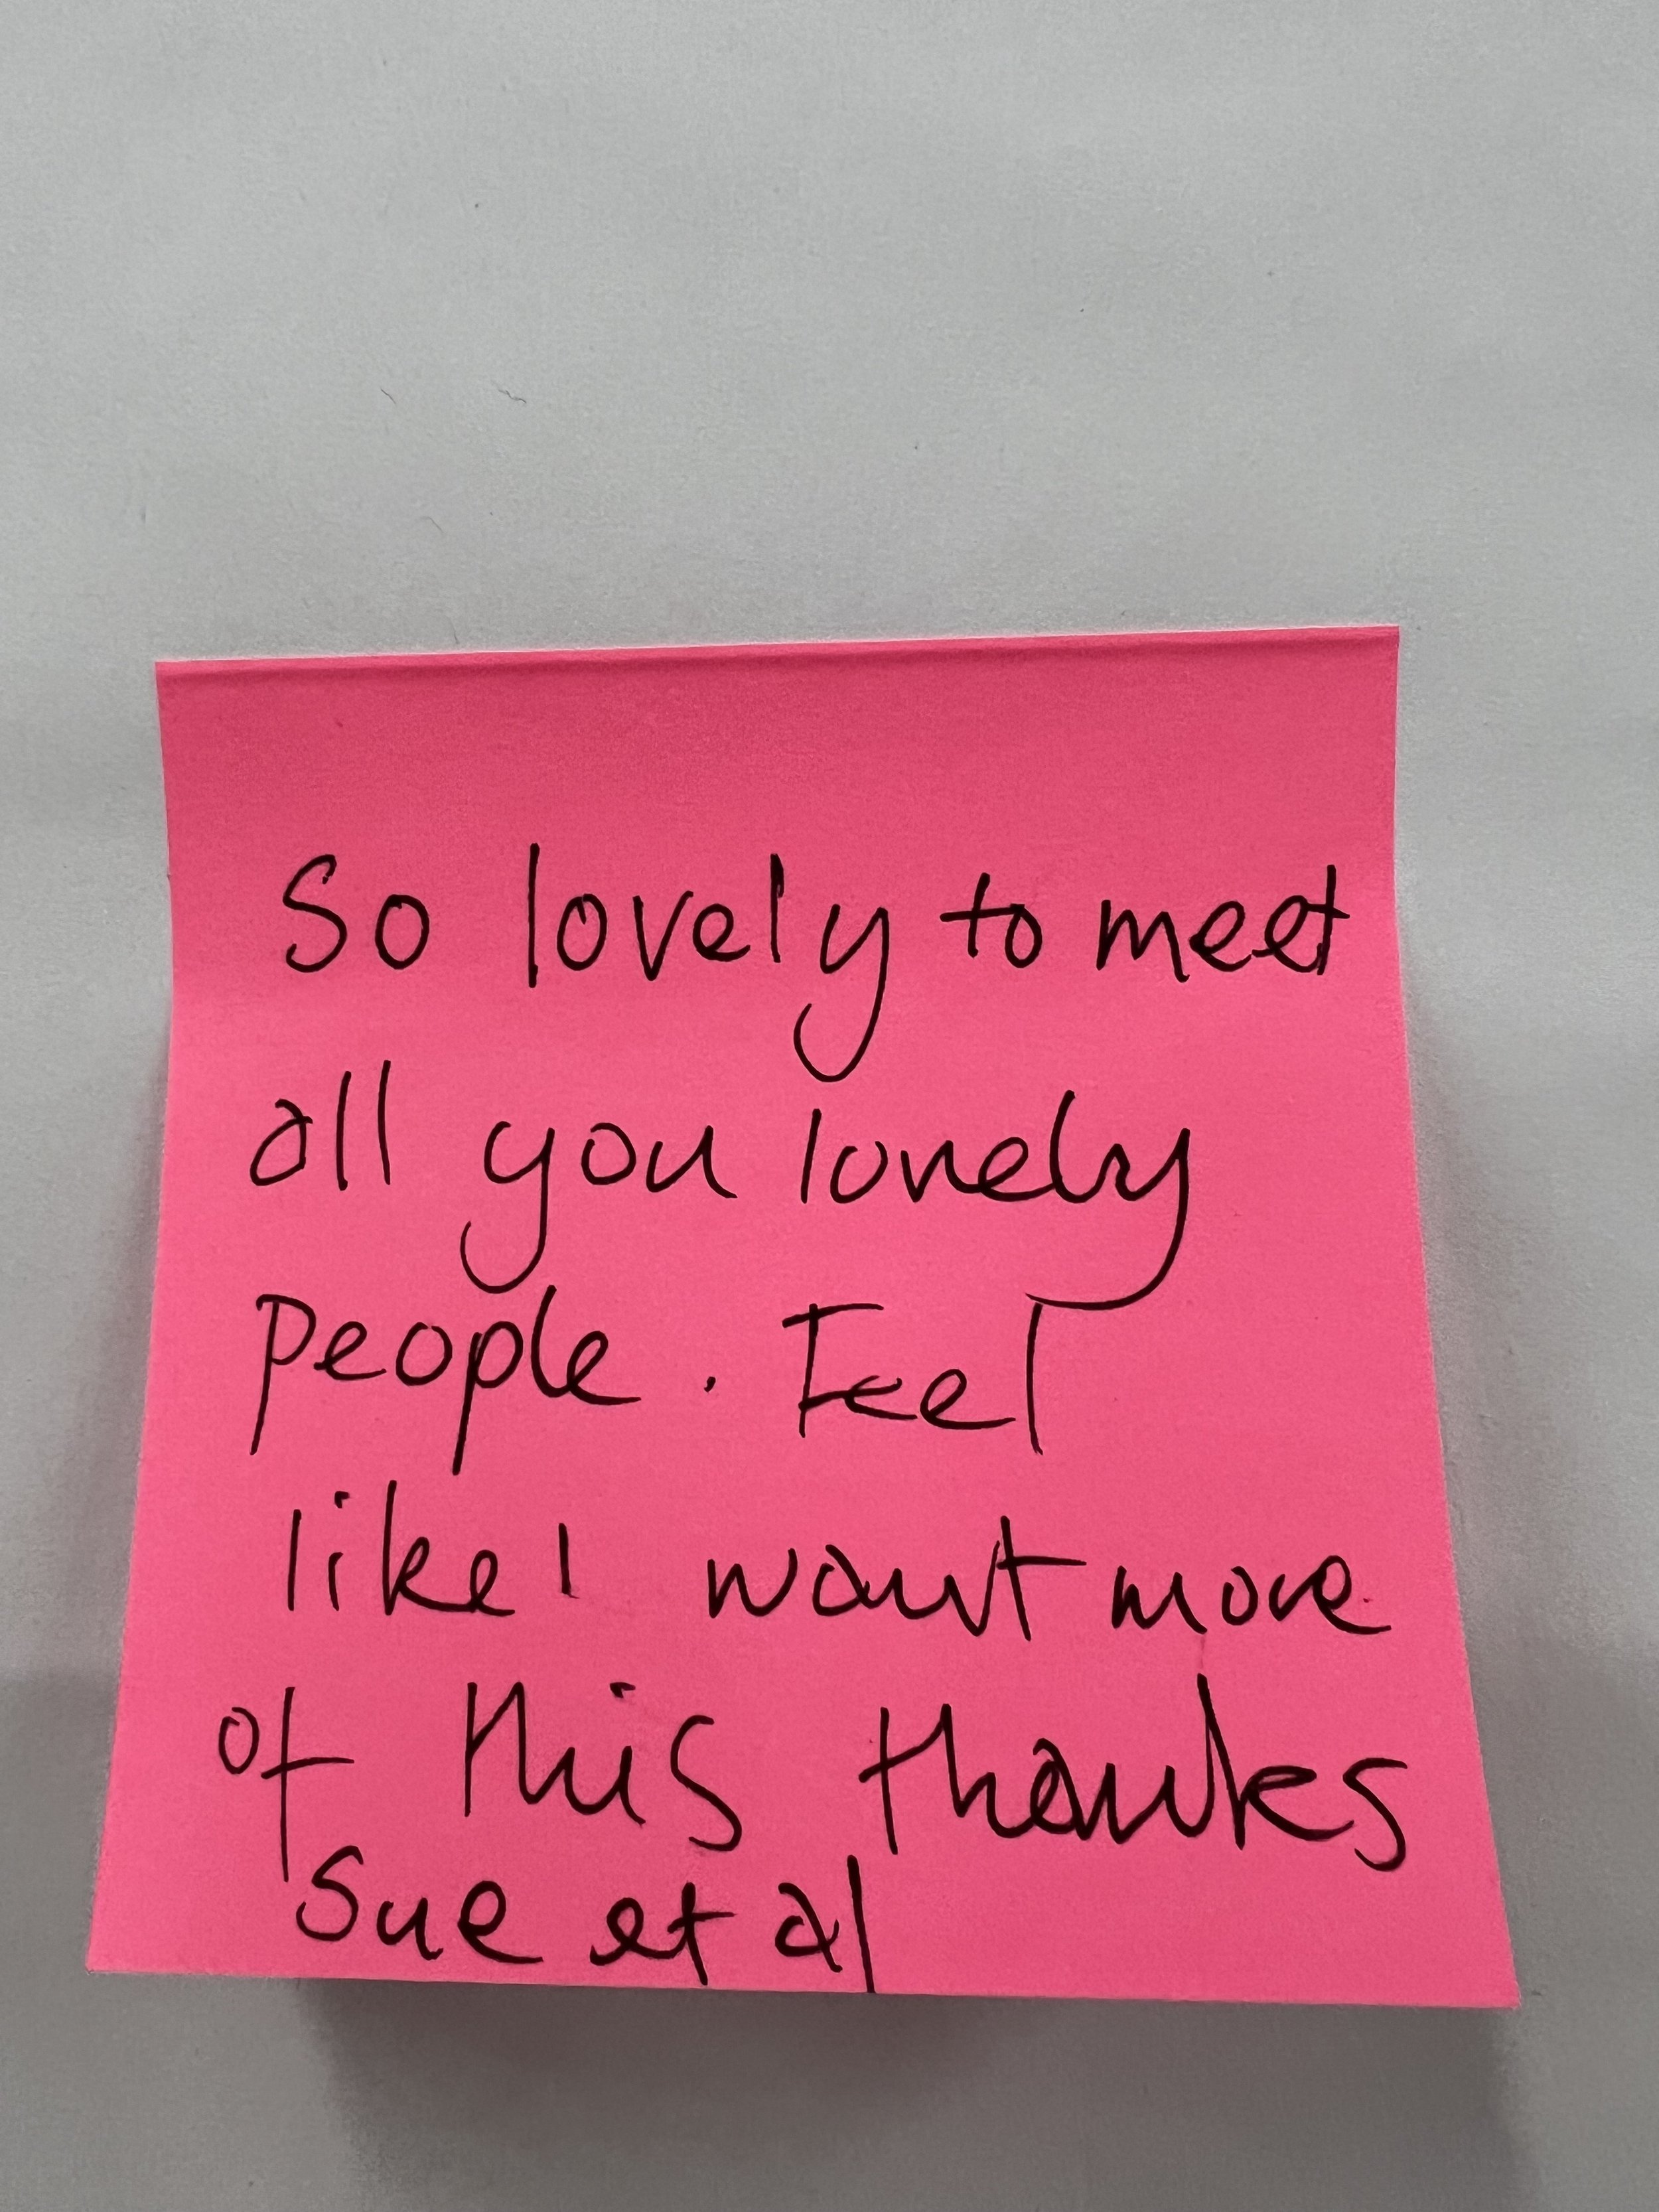 So lovely to meet
all you lonely
people. Feel
like I want more
of this thanks
Sue et al